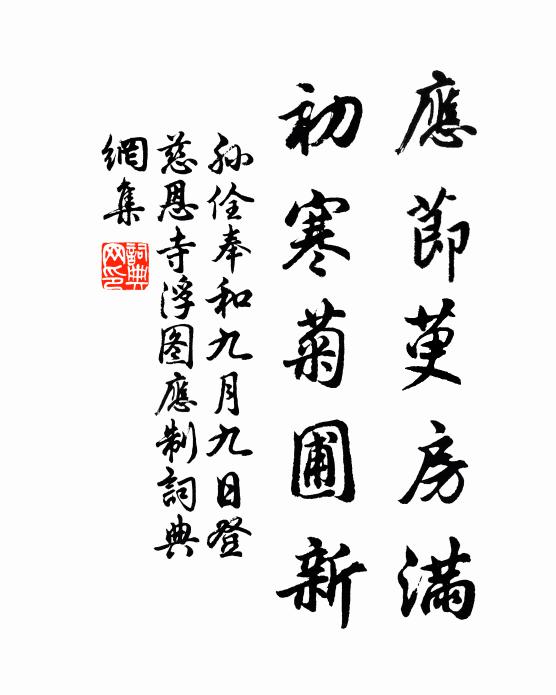 應節萸房滿
初寒菊圃新
孫佺奉和九月九日登
慈恩寺浮图應制詞典
網集
詞典
网印